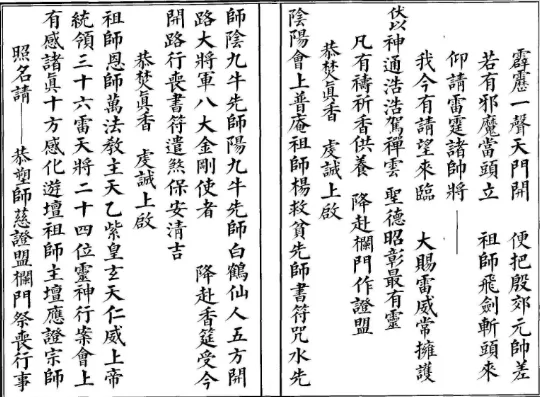 霹靂一聲天門開　便把殷郊元帥差
若有邪魔當頭立　祖師飛劍斬頭來
仰請雷霆諸師將——
我今有請望來臨　大賜雷威常擁護
伏以神通浩浩駕禪雲　聖德昭彰最有靈
凡有禱祈香供養　降赴欄門作證盟
恭焚眞香　虔誠上啟
陰陽會上普庵祖師楊救貧先師書符咒水先
師陰九牛先師陽九牛先師白鶴仙人五方開
路大將軍八大金剛使者　降赴香筵受今
開路行喪書符遣煞保安清吉
恭焚眞香　虔誠上啟
祖師恩師萬法教主天乙紫皇玄天仁威上帝
統領三十六雷天將二十四位靈神行案會上
有感諸眞十方感化遊壇祖師主壇應證宗師
照名請——恭望師慈證盟欄門祭喪行事